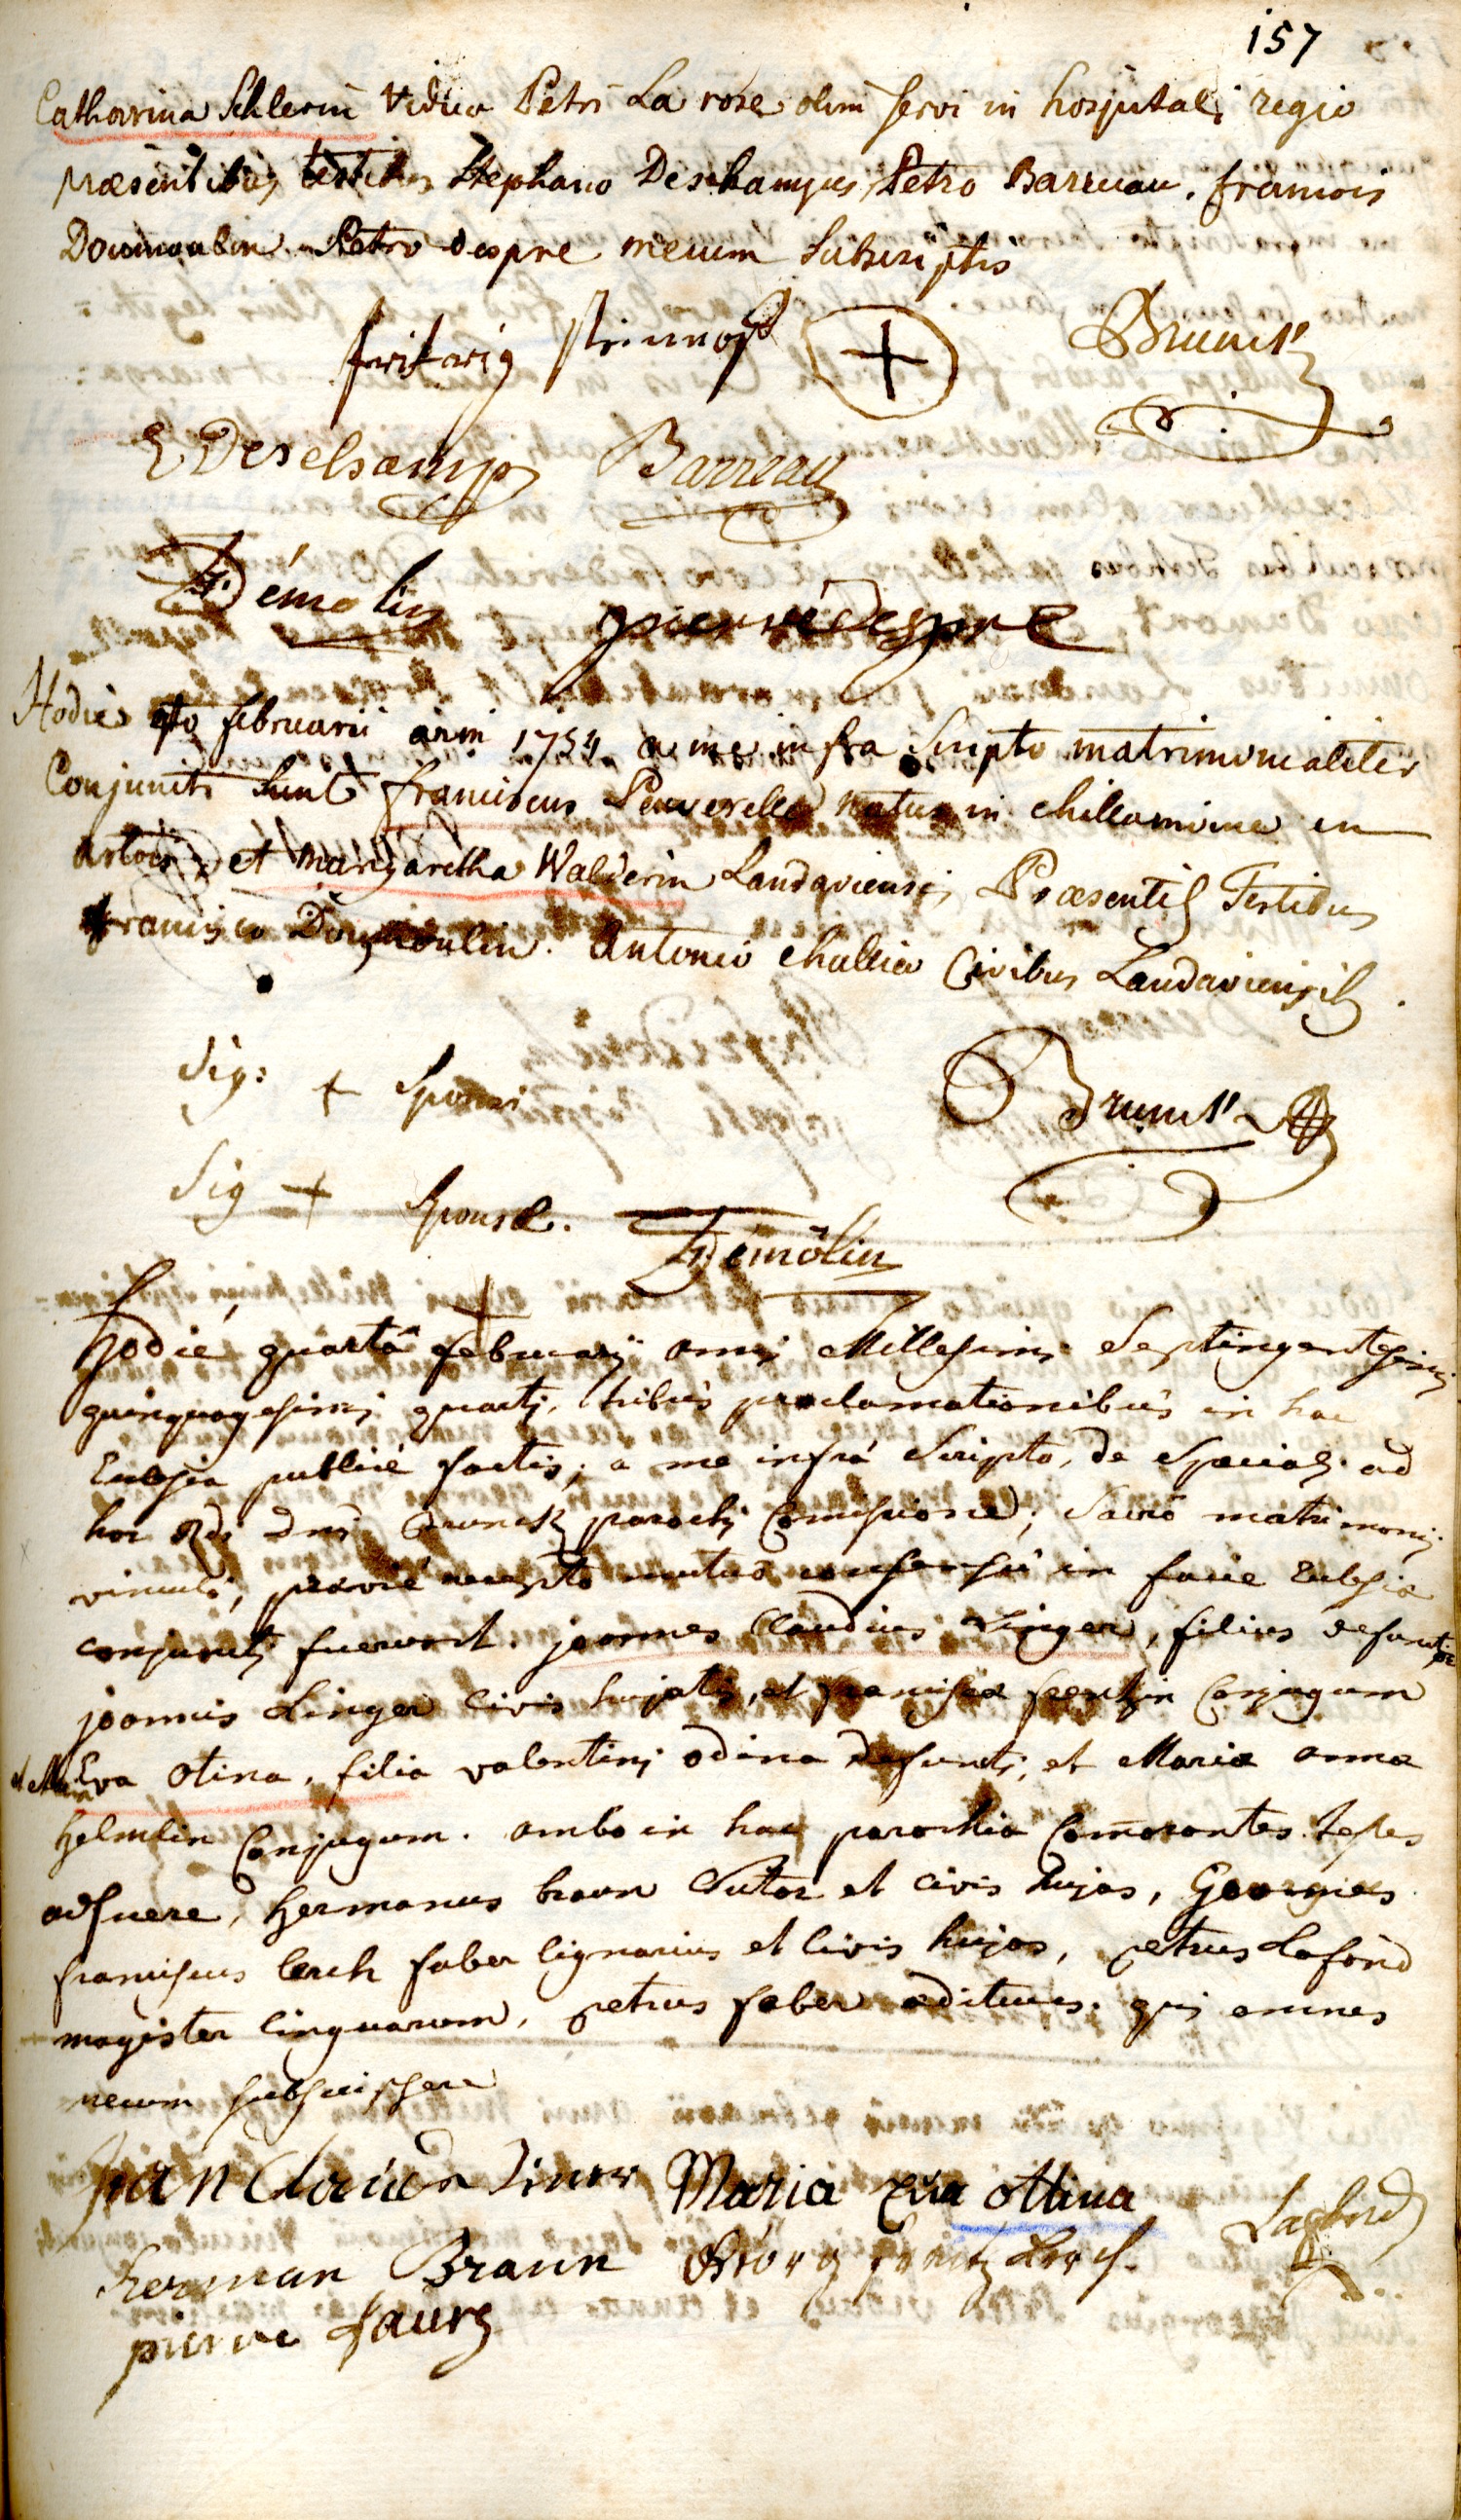 157
Catharina Schlerin vidua Petri La rose olim servi in hospitali regio
præsentibus testibus Stephano Deschamps, Petro Barreau, francois
Doumoulin Petro Despre mecum Subscriptis
Brunck
E Deschamps Barreau
F. Démolin pierre despre
Hodie 4to februarii anni 1754 a me infra Scripto matrimonialiter
Conjuncti Sunt franciscus Peuverelle natus in in
artois, et margaretha Walderin Landaviensis Præsentib Testibus
francisco Doumoulin. Antonio Civibus Landaviensib.
Sig: + Sponsi Brunck
Sig + Sponsæ. F. Démolin
+
hodié quartâ februarij anni Millesimi Septingentesimi
quinquagesimi quarti, tribus proclamationibus in hac
Eclesia publicé factis; a me infrá Scripto, de Speciali ad
hoc Rdi Dni Brunck parochi Comissione; Sacro matrimonij
vinculo, praevié accepto mutuo consensu in facie Eclesiæ
conjuncti fuerunt. joannes Claudius Linger, filius defuncti
joannis Linger Civis hujatis, et franciscæ Conjugum
et Maria Eva otina, filia valentini odina defuncti, et Mariæ annæ
helmlin Conjugum. ambo in hac parochia Comorantes. testes
adfuere, hermanus braun Sutor et Civis hujas, Georgius
franciscus lerch faber lignarius et Civis hujas, petrus Lafond
magister linguarum, petrus faber ædituus. qui omnes
mecum subscripsere
Maria Eva ottina Lafond
herman Braun Georg frantz Lerch
pierre